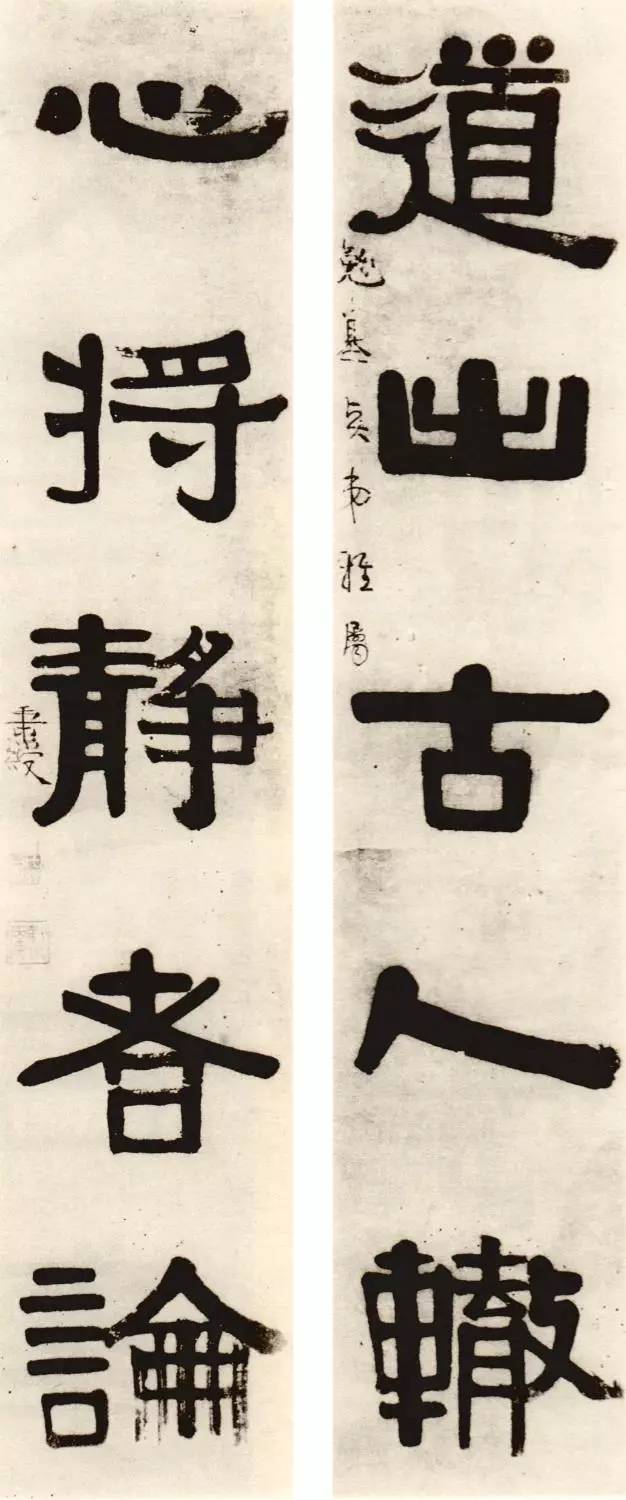 道出古人轍
弟雅屬
心將靜者論
秉綬